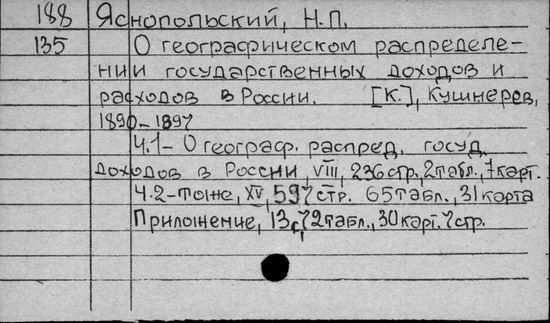 188 Яснопольский, Н.П.
135 О географическом распределе-
нии государственных доходов и
расходов в России. [К.], Кушнерев,
1890-1897
Ч.1- О географ. распред. госуд.
доходов в России, VIII, 236 стр., 2 табл., 7 карт.
Ч.2-тоже, XV, 597 стр. 65 табл., 31 карта
Приложение, 13, 72 табл., 30 карт. 7 стр.